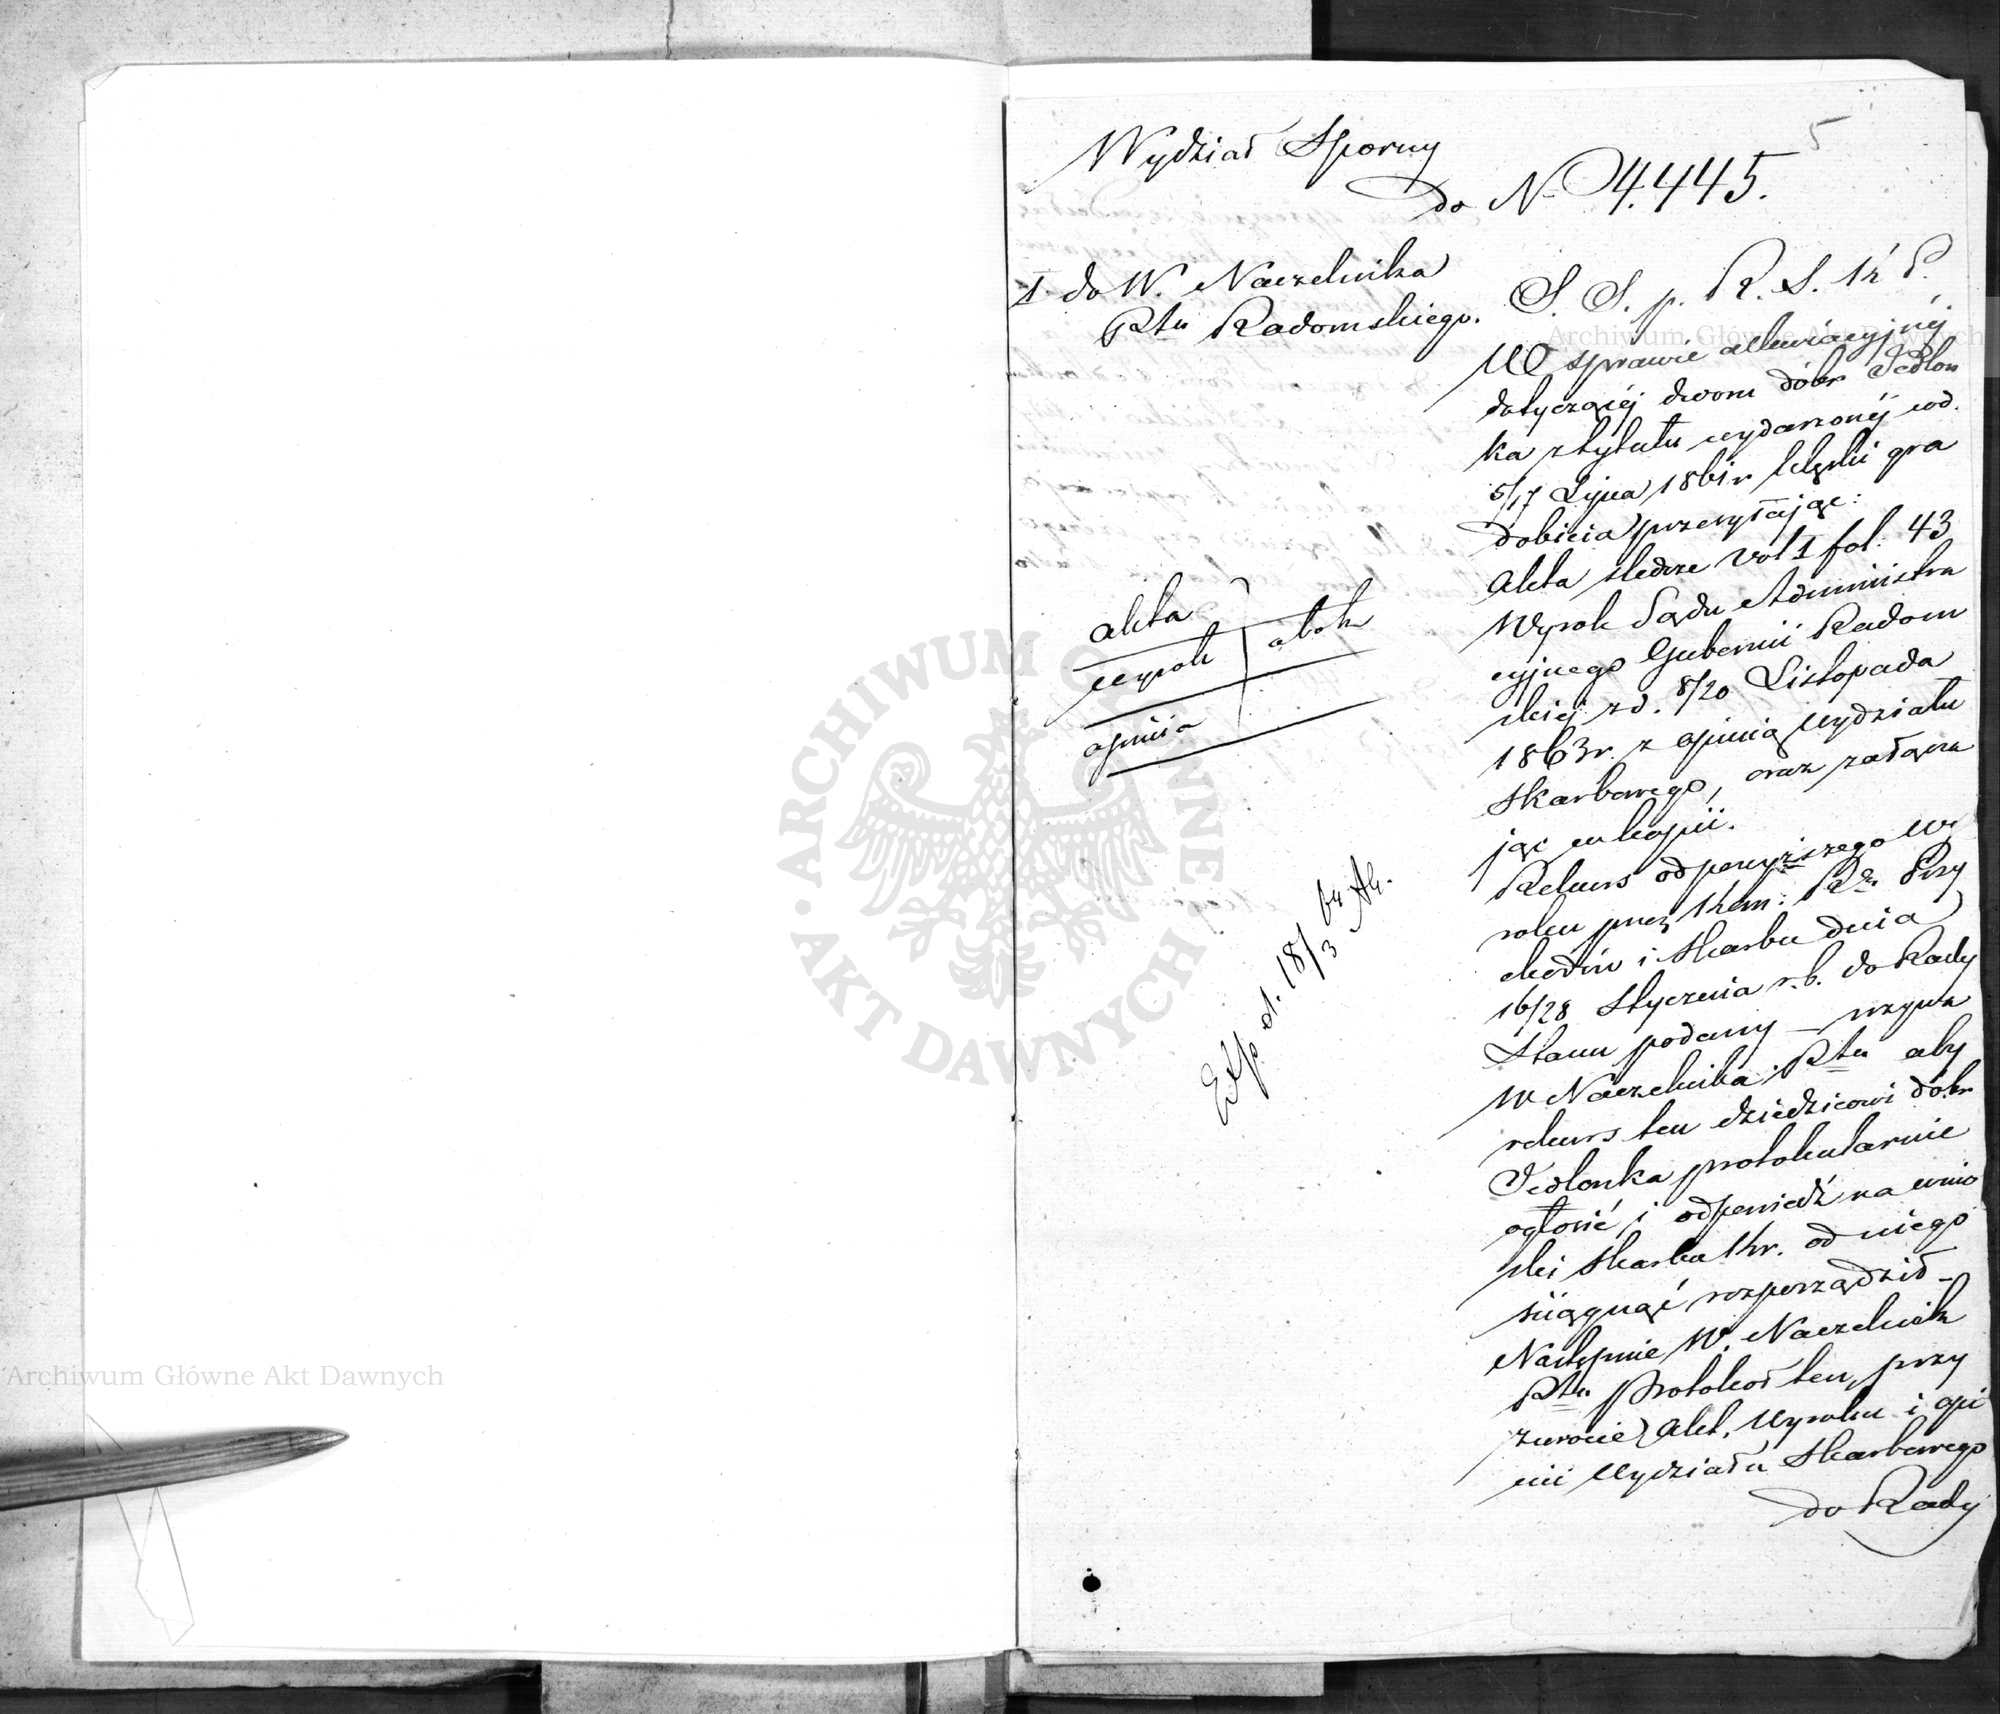 5
Wydział Sporny
do N 4.445.
1. do W. Naczelnika
Ptu Radomskiego.
S. S. p. R. S. Kr P.
W sprawie allewiacyjnéj
dotyczącéj dwom dóbr Jedlon
ka z tytułu wydarzonéj wd.
5/17 Lipca 1861 r klęski gra
dobicia przesyłając:
Akta śledcze vol 1 fol: 43
Wyrok Sądu Administra
cyjnego Gubernii Radom
skiej z d. 8/20 Listopada
1863 r. z opinią Wydziału
Skarbowego, oraz załącza
jąc w kopii.
Rekurs od powyższego Wy
roku przez Kom: Rz. Przy
chodów i Skarbu dnia
16/28 Stycznia r.b. do Rady
Stanu podany – wzywa
W Naczelnika Ptu aby
rekurs ten dziedzicowi dóbr
Jedlonka protokularnie
ogłosić i odpowiedź na wnio
ski Skarbu Kr. od niego
ściągnąć rozporządził –
Następnie W. Naczelnik
Ptu protokół ten, przy
zwrocie Akt, Wyroku i opi
nii Wydziału Skarbowego
do Rady
akta
wyrok
obok
opinia
Exp. d. 18/3 64
Archiwum Główne Akt Dawnych
Archiwum Główne Akt Dawnych
ARCHIWUM GŁÓWNE
AKT DAWNYCH